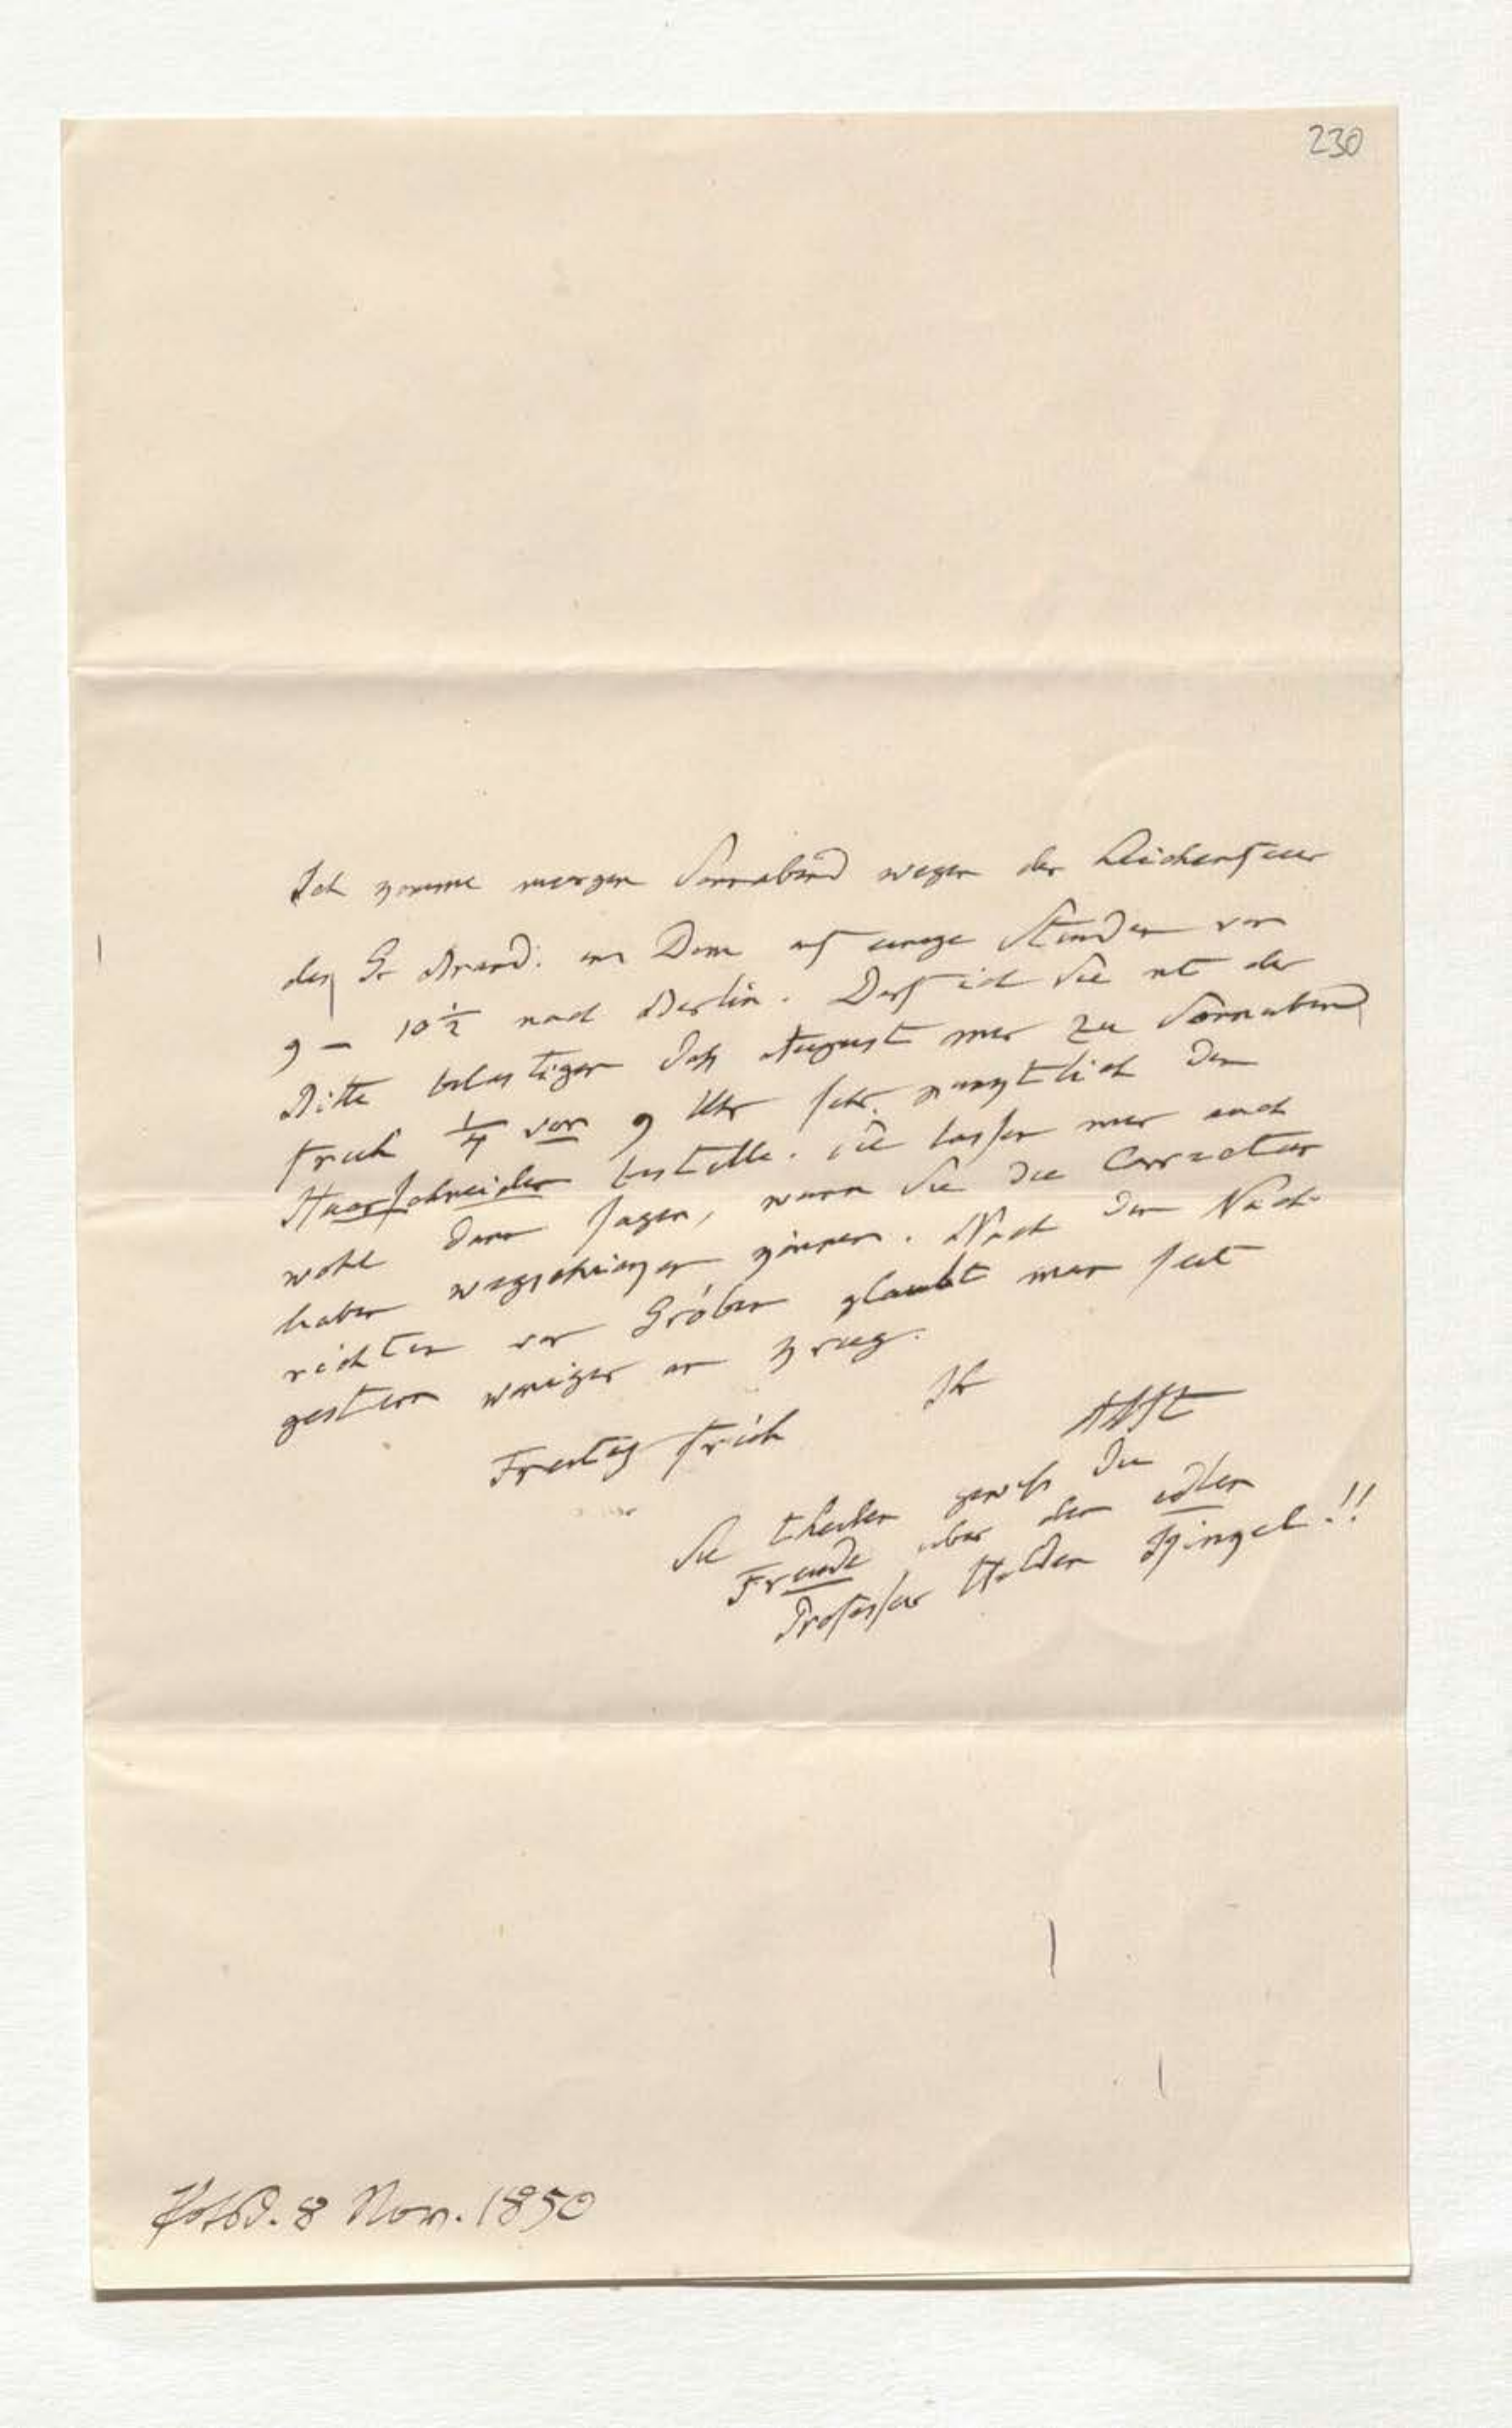 230
Ich komme morgen Sonnabend wegen der Leichenfeier
des Gr Brand: im Dom auf einige Stunden von
9 – 10 ½ nach Berlin. Darf ich Sie mit der
Bitte belästigen daß August mir zu Sonnabend
früh ¼ vor 9 Uhr sehr pünktlich den
Haarschneider bestelle. Sie lassen mir auch
wohl dann sagen, wann Sie die Correctur
haben wegschicken können. Nach den Nach-
richten von Gröben glaubt man seit
gestern weniger an Krieg.
Ihr
AHt
Freitag früh
Sie theilen gewiß die
Freude über den edlen
Professor Helden Kinkel!!
Potsd. 8 Nov. 1850